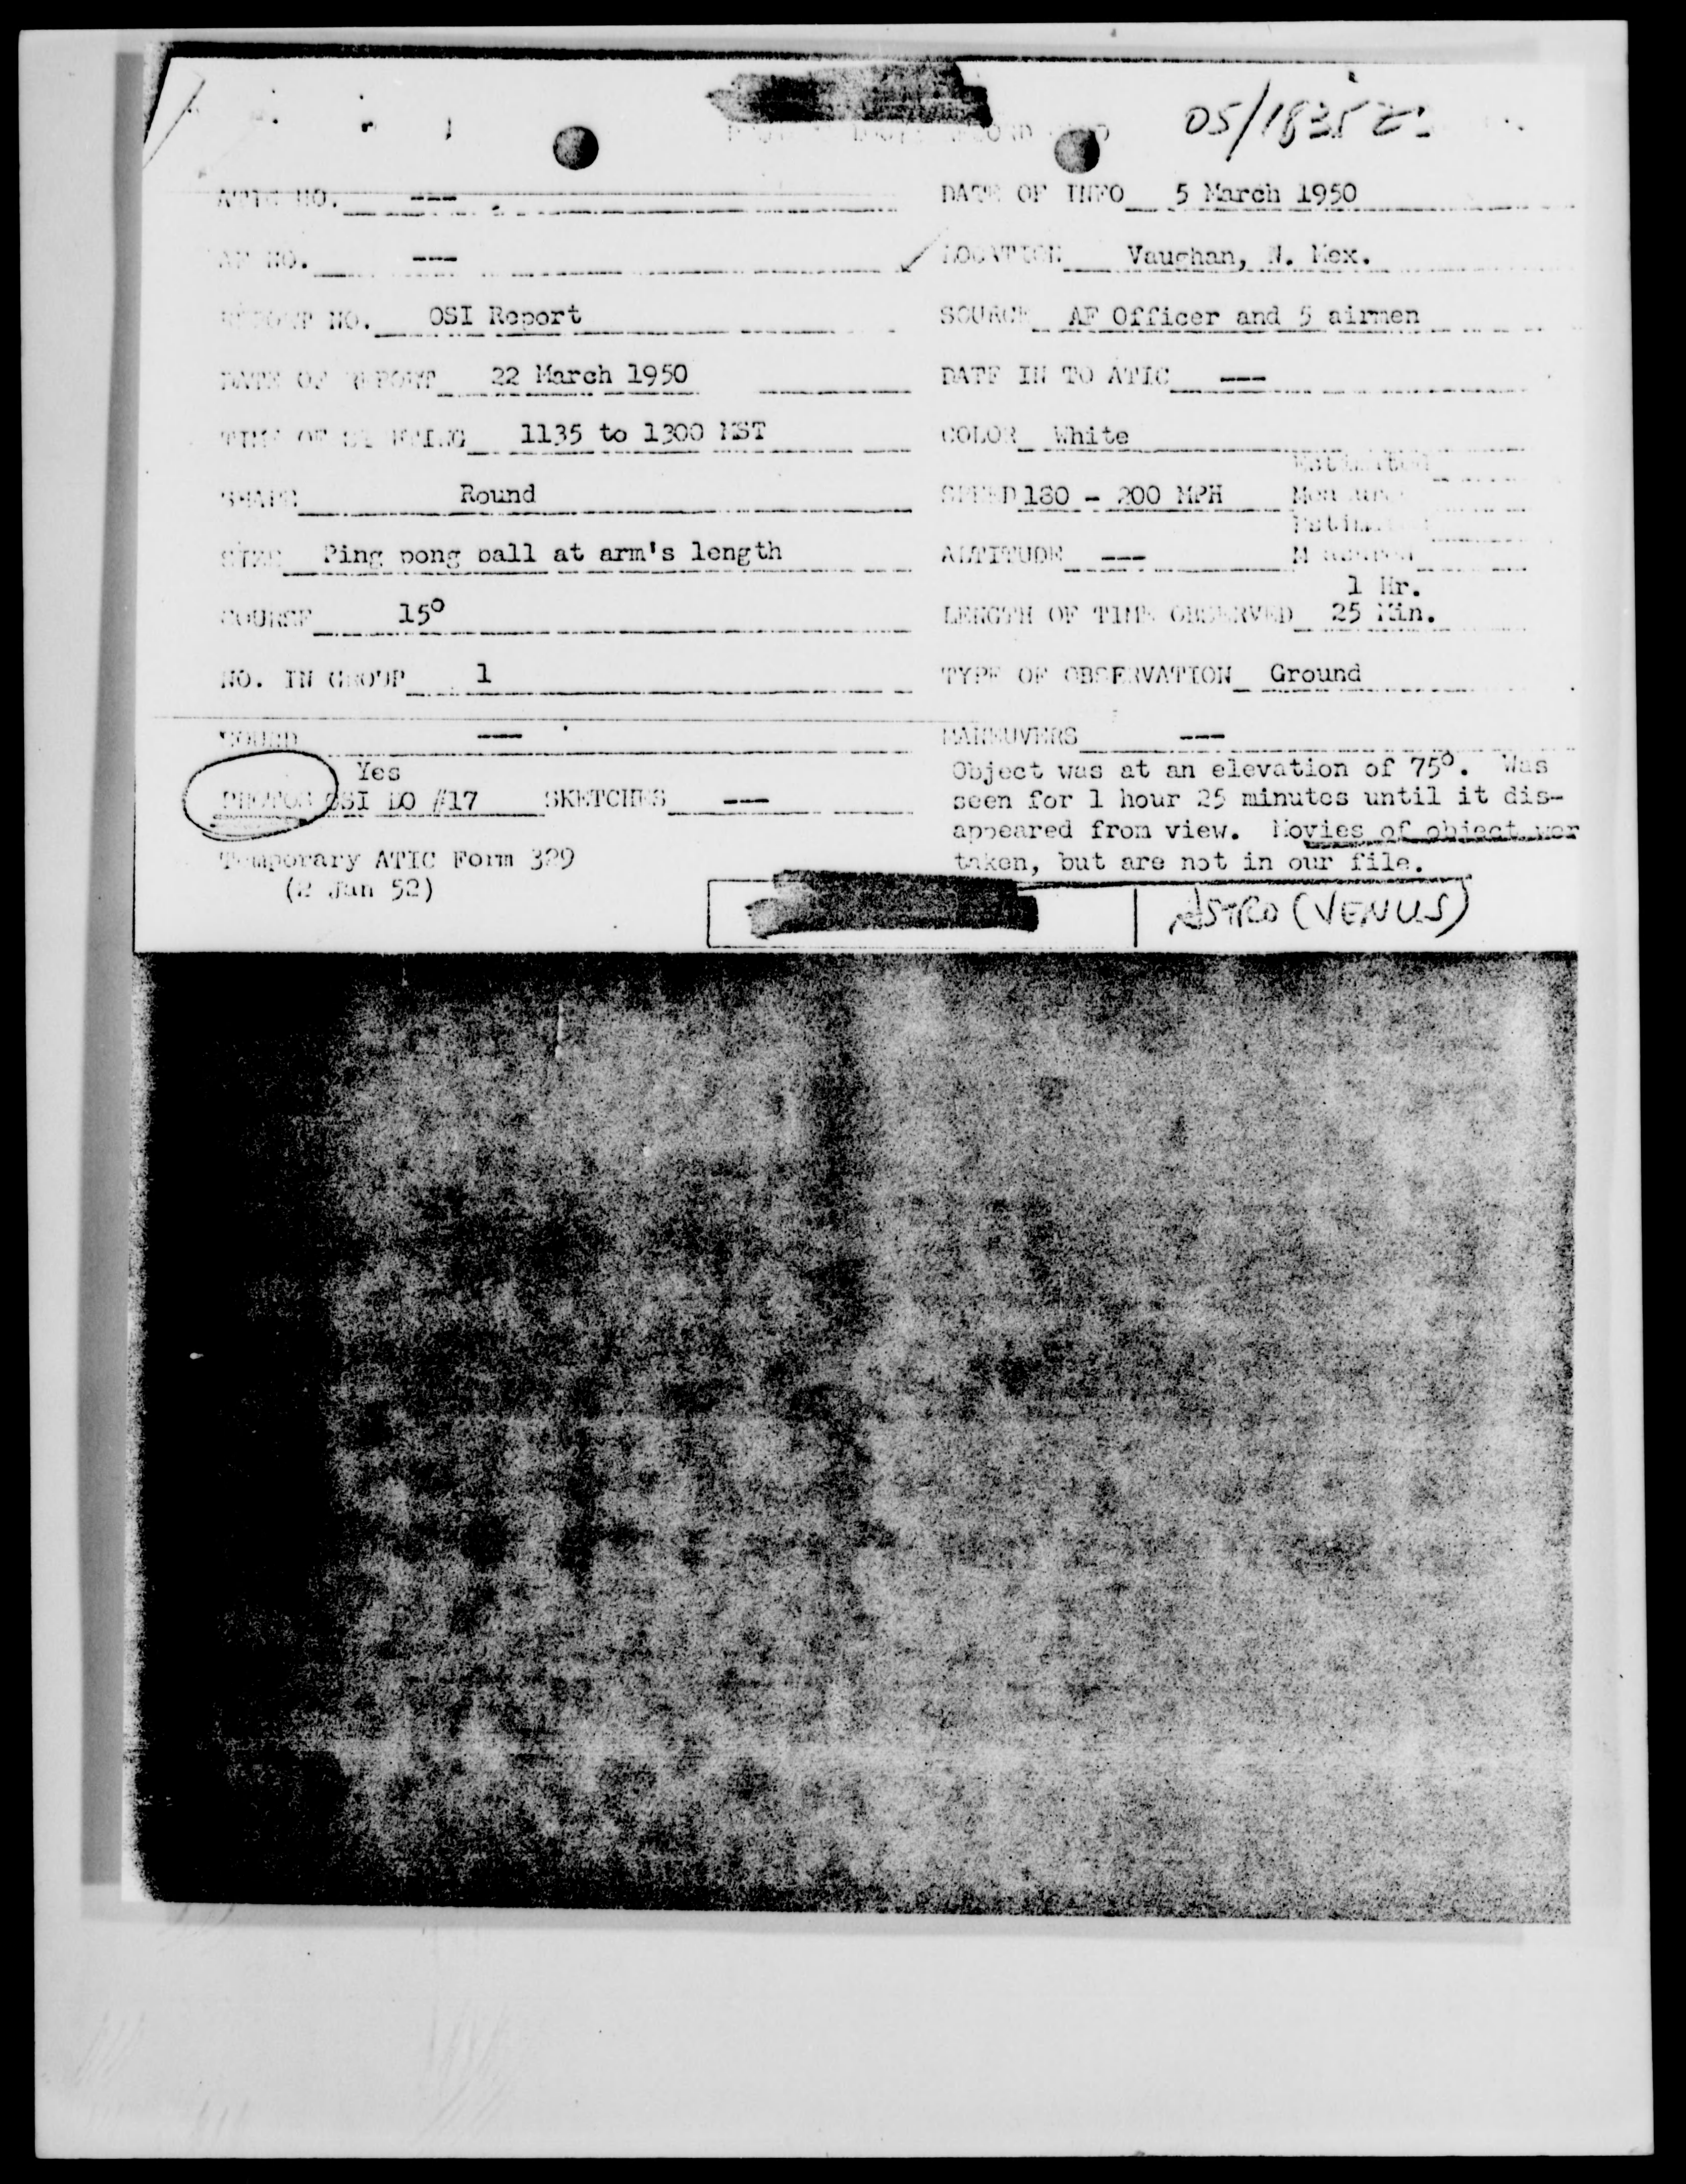 05/1835Z
ATIC NO. ---
DATE OF INFO 5 March 1950
AF NO. ---
LOCATION Vaughan, N. Mex.
REPORT NO. OSI Report
SOURCE AF Officer and 5 airmen
DATE OF REPORT 22 March 1950
DATE IN TO ATIC ---
TIME OF SIGHTING 1135 to 1300 MST
COLOR White
SHAPE Round
SPEED 180 - 200 MPH
Estimated
Measured
SIZE Ping pong ball at arm's length
ALTITUDE ---
Estimated
Measured
COURSE 15°
LENGTH OF TIME OBSERVED 1 Hr.
25 Min.
NO. IN GROUP 1
TYPE OF OBSERVATION Ground
SOUND ---
MANEUVERS ---
Yes
PHOTOS OSI DO #17 SKETCHES ---
Object was at an elevation of 75°. Was
seen for 1 hour 25 minutes until it dis-
appeared from view. Movies of object wer
taken, but are not in our file.
Temporary ATIC Form 329
(2 Jan 52)
ASTRO (VENUS)